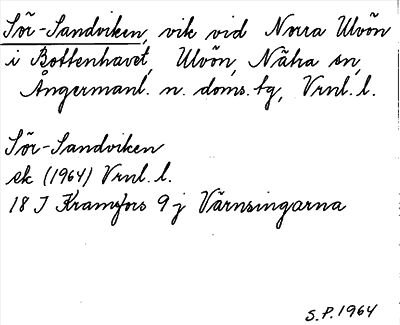 Sör-Sandviken, vik vid Norra Ulvön
i Bottenhavet, Ulvön, Nätra sn,
Ångermanl. n. doms. tg, Vrnl. l.
Sör-Sandviken
ek (1964) Vrnl. l.
18 I Kramfors 9 j Värnsingarna
S.P. 1964